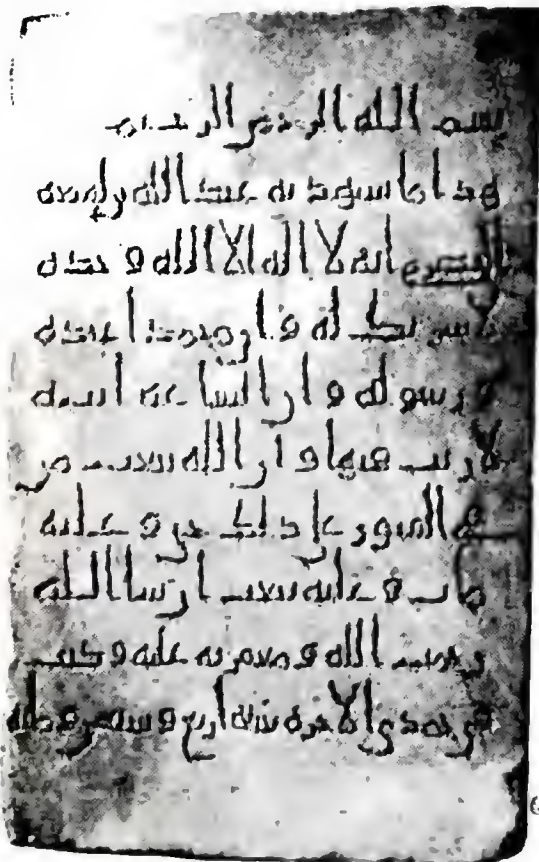 بسم الله الرحمن الرحيم
هذا ما يشهد به عبد الله بن لهيعه
الحضرمي انه لا اله الا الله وحده
لا شريك له وان محمدا عبده
ورسوله وان الساعة اتيه
لا ريب فيها وان الله يبعث من
في القبور على ذلك حيي وعليه
مات وعليه يبعث ان شا الله
رحمت الله ومغفرته عليه وكتب
في جمدي الاخرة سنة اربع وسبعين ومائه